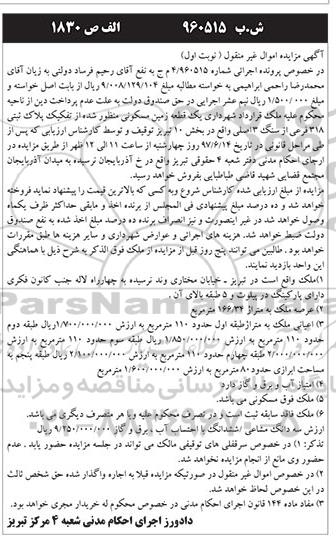 ش.ب ۹۶۰۵۱۵ الف ص ۱۸۳۰
آگهی مزایده اموال غیر منقول ( نوبت اول)
در خصوص پرونده اجرائی شماره ۴/۹۶۰۵۱۵ م ج به نفع آقای رحیم فرساد دولتی به زیان آقای
محمدرضا راحمی ابراهیمی به خواسته مطالبه مبلغ ۹/۰۰۸/۱۲۹/۱۰۴ ریال از بابت اصل خواسته و
۱/۵۰۰/۰۰۰ ریال نیم عشر اجرایی در حق صندوق دولت به علت عدم پرداخت دین از ناحیه
محکوم علیه ملک قرارداد شهرداری یک قطعه زمین مسکونی منظور شده از تفکیک پلاک ثبتی
۳۱۸ فرعی از سنگ ۳ اصلی واقع در بخش ۱۰ تبریز توقیف و توسط کارشناس ارزیابی که پس از
طی مراحل قانونی در تاریخ ۹۷/۶/۱۴ روز چهارشنبه از ساعت ۱۱ الی ۱۲ ظهر از طریق مزایده در
اجرای احکام مدنی دفتر شعبه ۴ حقوقی تبریز واقع در خ آذربایجان نرسیده به میدان آذربایجان
مجتمع قضایی شهید قاضی طباطبایی بفروش خواهد رسید.
مزایده از مبلغ ارزیابی شده کارشناس شروع وبه کسی که بالاترین قیمت را پیشنهاد نماید فروخته
خواهد شد و ده درصد مبلغ پیشنهادی فی المجلس از برنده اخذ و مابقی حداکثر ظرف یکماه
وصول خواهد شد در غیر اینصورت و نیز انصراف برنده ده درصد مبلغ اخذ شده به نفع صندوق
دولت ضبط خواهد شد. هزینه های اجرائی و عوارض شهرداری و سایر هزینه ها طبق مقررات
خواهد بود. طالبین می توانند پنج روز قبل از مزایده از ملک فوق الذکر به شرح ذیل با هماهنگی
این واحد بازدید نمایند.
۱)ملک واقع است در تبریز ـ خیابان مختاری وند نرسیده به چهارراه لاله جنب کانون فکری
دارای پارکینگ در پیلوت و ۵ طبقه بالای آن .
۲) عرصه ملک به متراژ ۱۶۶/۳۴ مترمربع
۳) اعیانی ملک به متراژطبقه اول حدود ۱۱۰ مترمربع به ارزش ۱/۷۰۰/۰۰۰/۰۰۰ریال طبقه دوم
حدود ۱۱۰ مترمربع به ارزش ۱/۸۵۰/۰۰۰/۰۰۰ ریال طبقه سوم حدود ۱۱۰ مترمربع به ارزش
۲/۰۰۰/۰۰۰/۰۰۰ طبقه چهارم حدود ۱۱۰ مترمربع به ارزش ۲/۱۰۰/۰۰۰/۰۰۰ ریال طبقه پنجم به
مساحت ابرازی حدود۸۰ مترمربع به ارزش ۱/۶۰۰/۰۰۰/۰۰۰ مترمربع
۴) امتیاز آب و برق و گاز دارد
۵) ملک فوق مسکونی می باشد.
۶) ملک فاقد سابقه ثبت است و در تصرف محکوم علیه و یا هر متصرف دیگری می باشد.
ارزش سه دانگ مشاعی ششدانگ با احتساب آب ، برق و گاز ۹/۲۵۰/۰۰۰/۰۰۰ ریال
تذکر: ۱) در خصوص سرقفلی های توقیفی مالک می تواند در جلسه مزایده حضور یابد . عدم
حضور وی مانع از انجام مزایده نخواهد شد.
۲) در خصوص اموال غیر منقول در صورتیکه مزایده قبلا به اجاره واگذار شده حق شخص ثالث
در این خصوص لحاظ خواهد شد.
۳) مفاد ماده ۱۴۴ قانون اجرای احکام مدنی در خصوص محکوم له خریدار مجری خواهد بود.
دادورز اجرای احکام مدنی شعبه ۴ مرکز تبریز